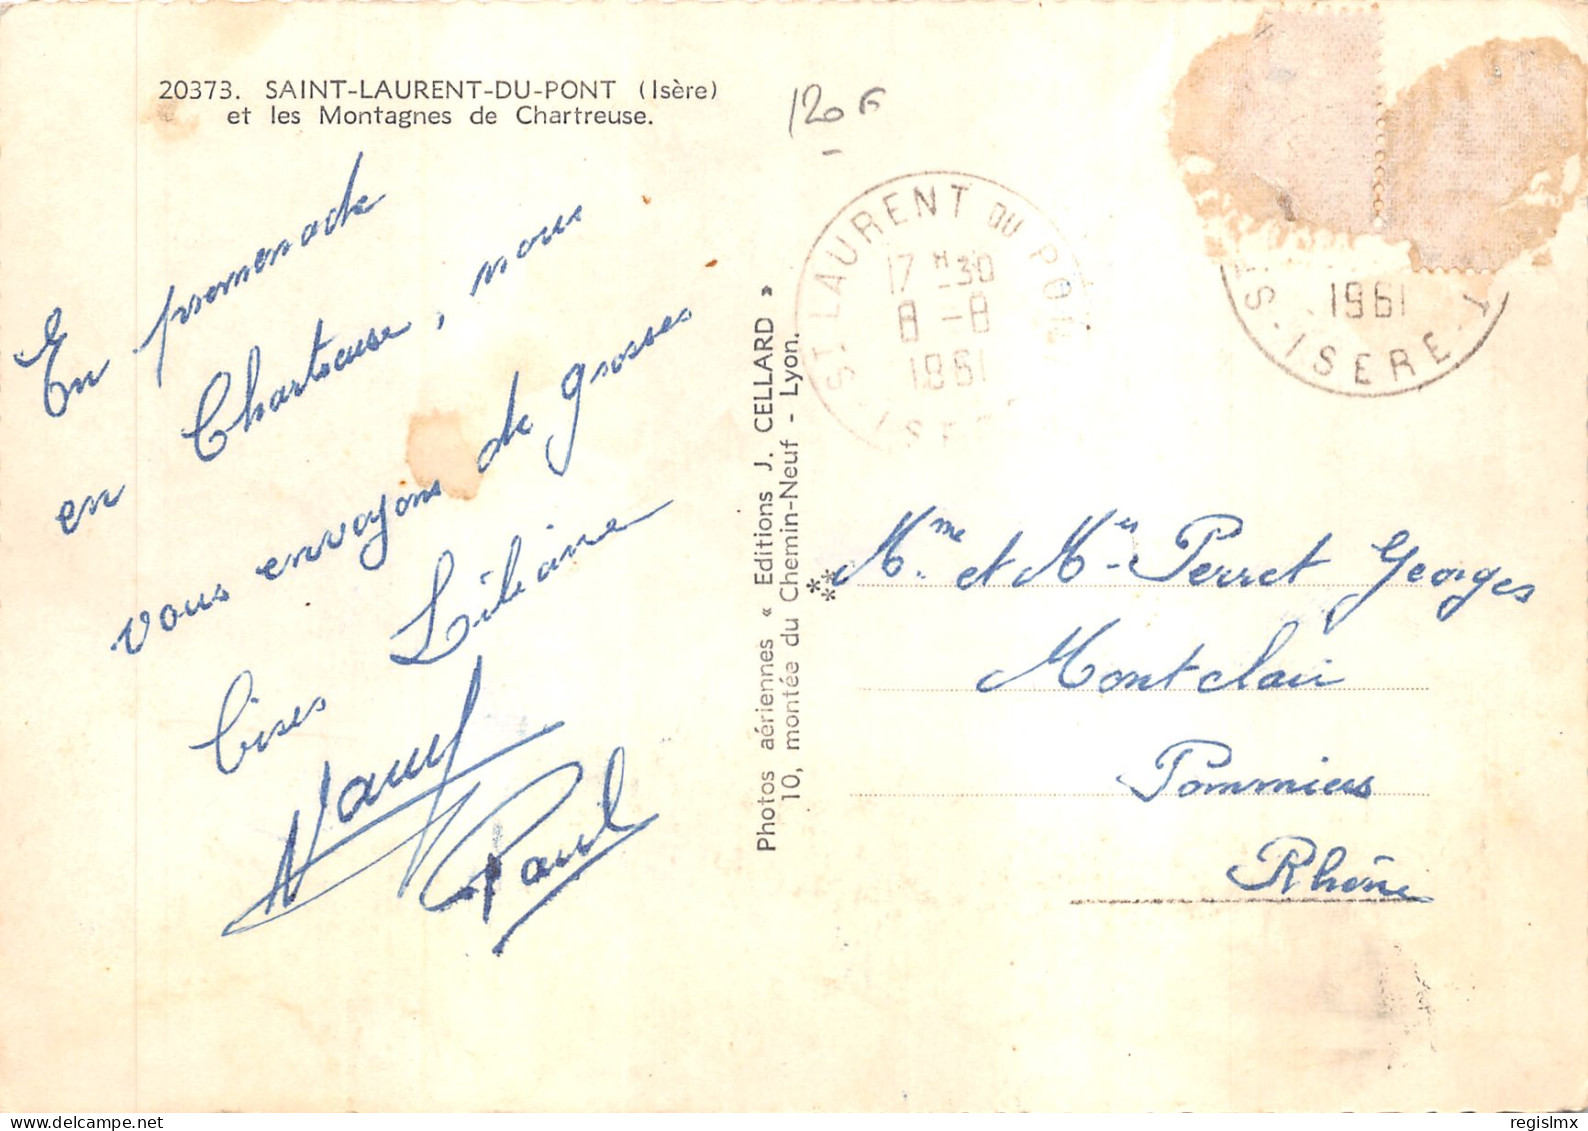 20373. SAINT-LAURENT-DU-PONT (Isère)
et les Montagnes de Chartreuse.
En promenade
en Chartreuse, nous
vous envoyons de grosses
bises Liliane
Paul
Photos aériennes « Editions J. CELLARD »
10, montée du Chemin-Neuf - Lyon.
120 F
ST LAURENT DU PONT
17 H 30
8 - 8
1961
ISERE
1961
ISERE
Mme et Mr Perret Georges
Montclair
Pommiers
Rhône
regislmx